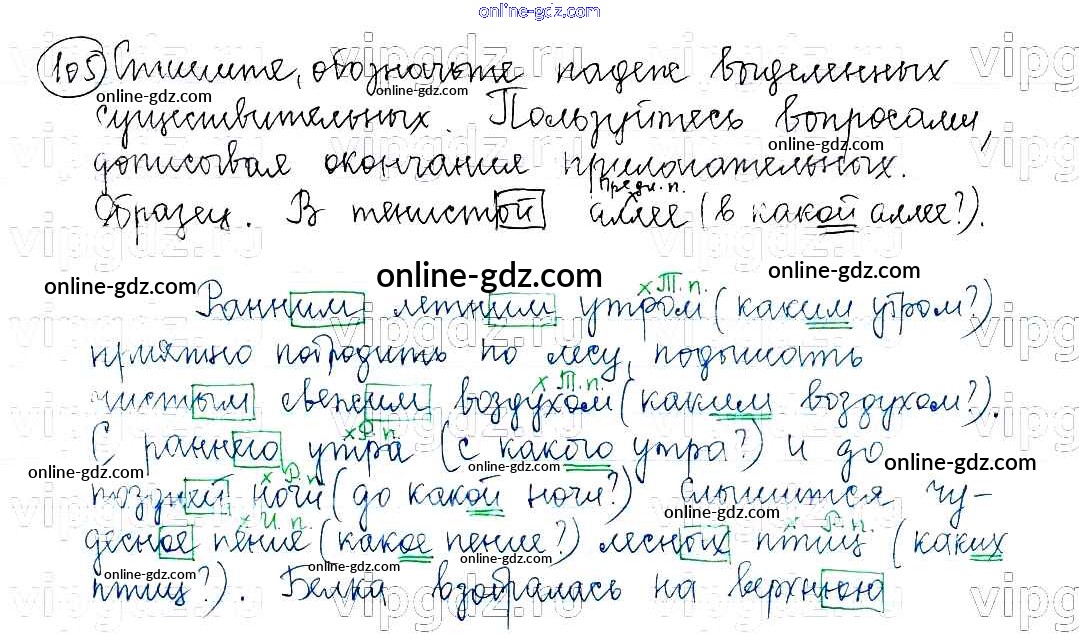 online-gdz.com
105 Спишите, обозначьте падеж выделенных
существительных. Пользуйтесь вопросами,
дописывая окончания прилагательных.
Предл. п.
Образец. В тенистой аллее (в какой аллее?).
х Т. п.
Ранним летним утром (каким утром?)
приятно побродить по лесу, подышать
х Т. п.
чистым свежим воздухом (каким воздухом?).
х Р. п.
С раннего утра (с какого утра?) и до
х Р. п.
поздней ночи (до какой ночи?) слышится чу-
х И. п. х Р. п.
десное пение (какое пение?) лесных птиц (каких
птиц?). Белка взобралась на верхнюю